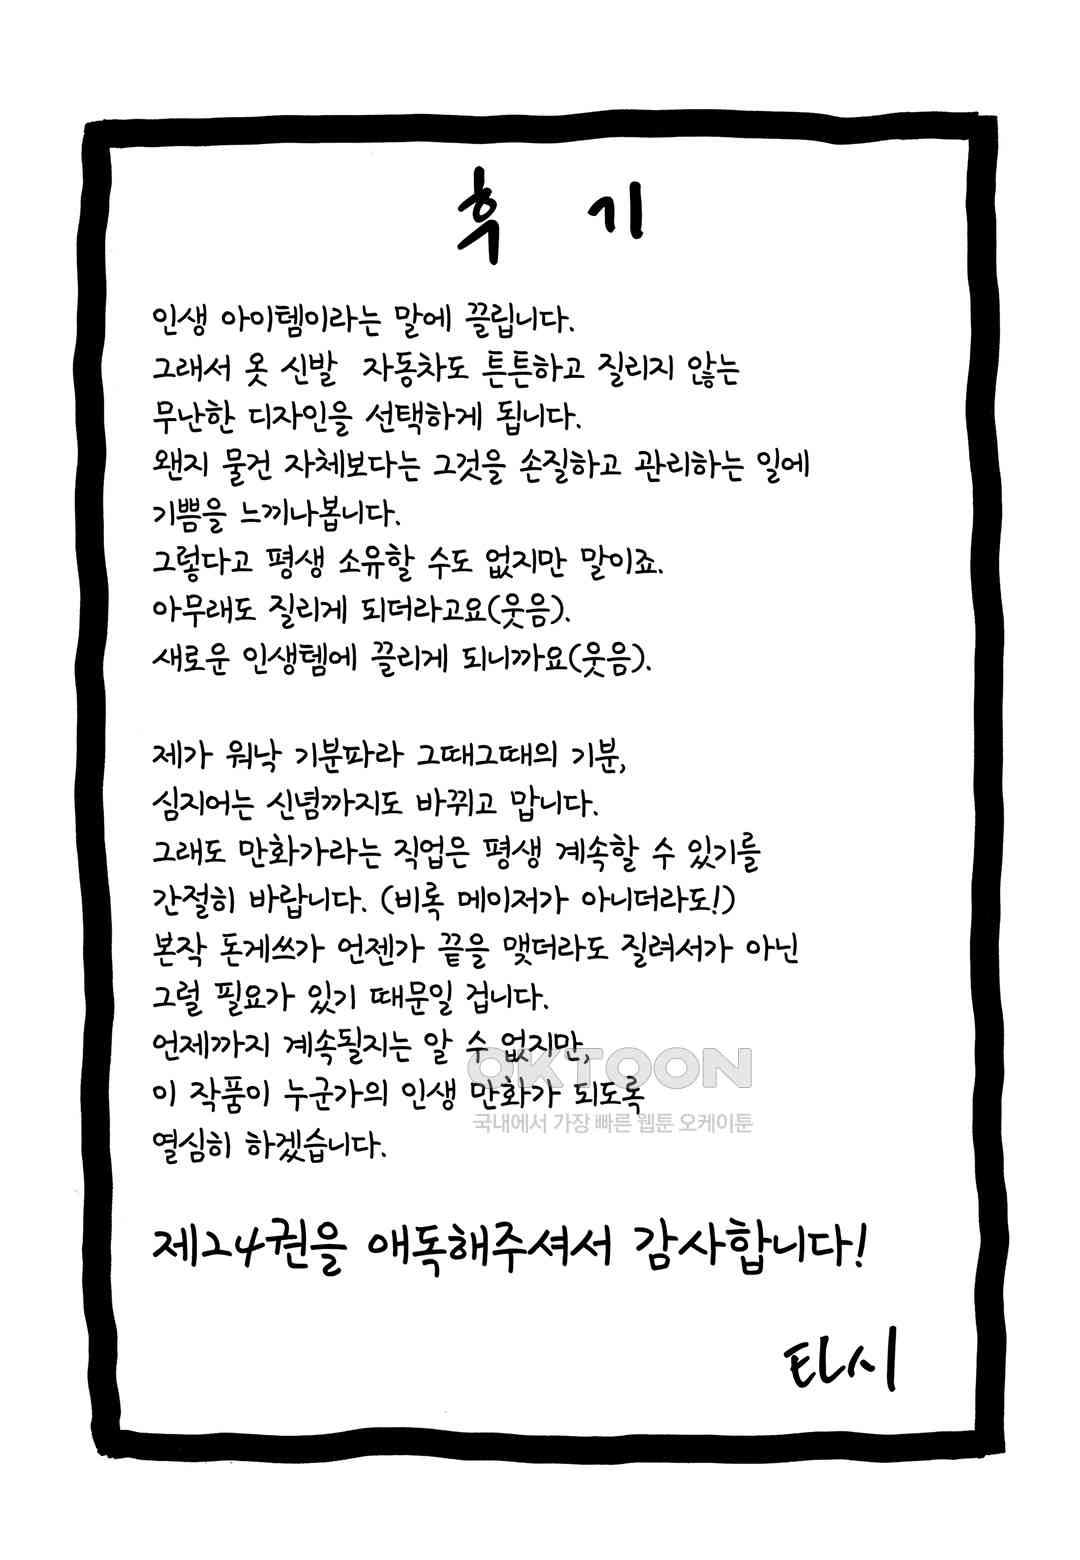 후 기
인생 아이템이라는 말에 끌립니다.
그래서 옷 신발 자동차도 튼튼하고 질리지 않는
무난한 디자인을 선택하게 됩니다.
왠지 물건 자체보다는 그것을 손질하고 관리하는 일에
기쁨을 느끼나봅니다.
그렇다고 평생 소유할 수도 없지만 말이죠.
아무래도 질리게 되더라고요(웃음).
새로운 인생템에 끌리게 되니까요(웃음).
제가 워낙 기분파라 그때그때의 기분,
심지어는 신념까지도 바뀌고 맙니다.
그래도 만화가라는 직업은 평생 계속할 수 있기를
간절히 바랍니다. (비록 메이저가 아니더라도!)
본작 돈게쓰가 언젠가 끝을 맺더라도 질려서가 아닌
그럴 필요가 있기 때문일 겁니다.
언제까지 계속될지는 알 수 없지만,
이 작품이 누군가의 인생 만화가 되도록
열심히 하겠습니다.
OKTOON
국내에서 가장 빠른 웹툰 오케이툰
제24권을 애독해주셔서 감사합니다!
타시